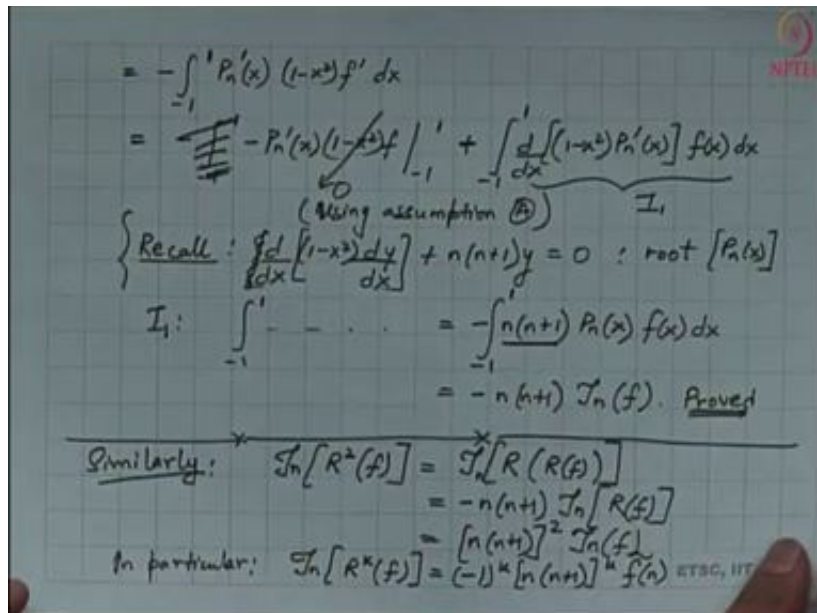 = -∫₋₁¹ Pn'(x) (1-x²) f' dx
NPTEL
= - Pn'(x)(1-x²)f |₋₁¹ + ∫₋₁¹ d/dx [(1-x²) Pn'(x)] f(x) dx
0
(Using assumption Ⓐ) I₁
{Recall : d/dx [(1-x²) dy/dx] + n(n+1)y = 0 : root [Pn(x)]
I₁ : ∫₋₁¹ - - - - = -∫₋₁¹ n(n+1) Pn(x) f(x) dx
= - n(n+1) 𝒯n(f). Proved
Similarly: 𝒯n[R²(f)] = 𝒯n[R(R(f))]
= -n(n+1) 𝒯n[R(f)]
= [n(n+1)]² 𝒯n(f)
In particular: 𝒯n[Rᵏ(f)] = (-1)ᵏ [n(n+1)]ᵏ f(n) ETSC, IIT